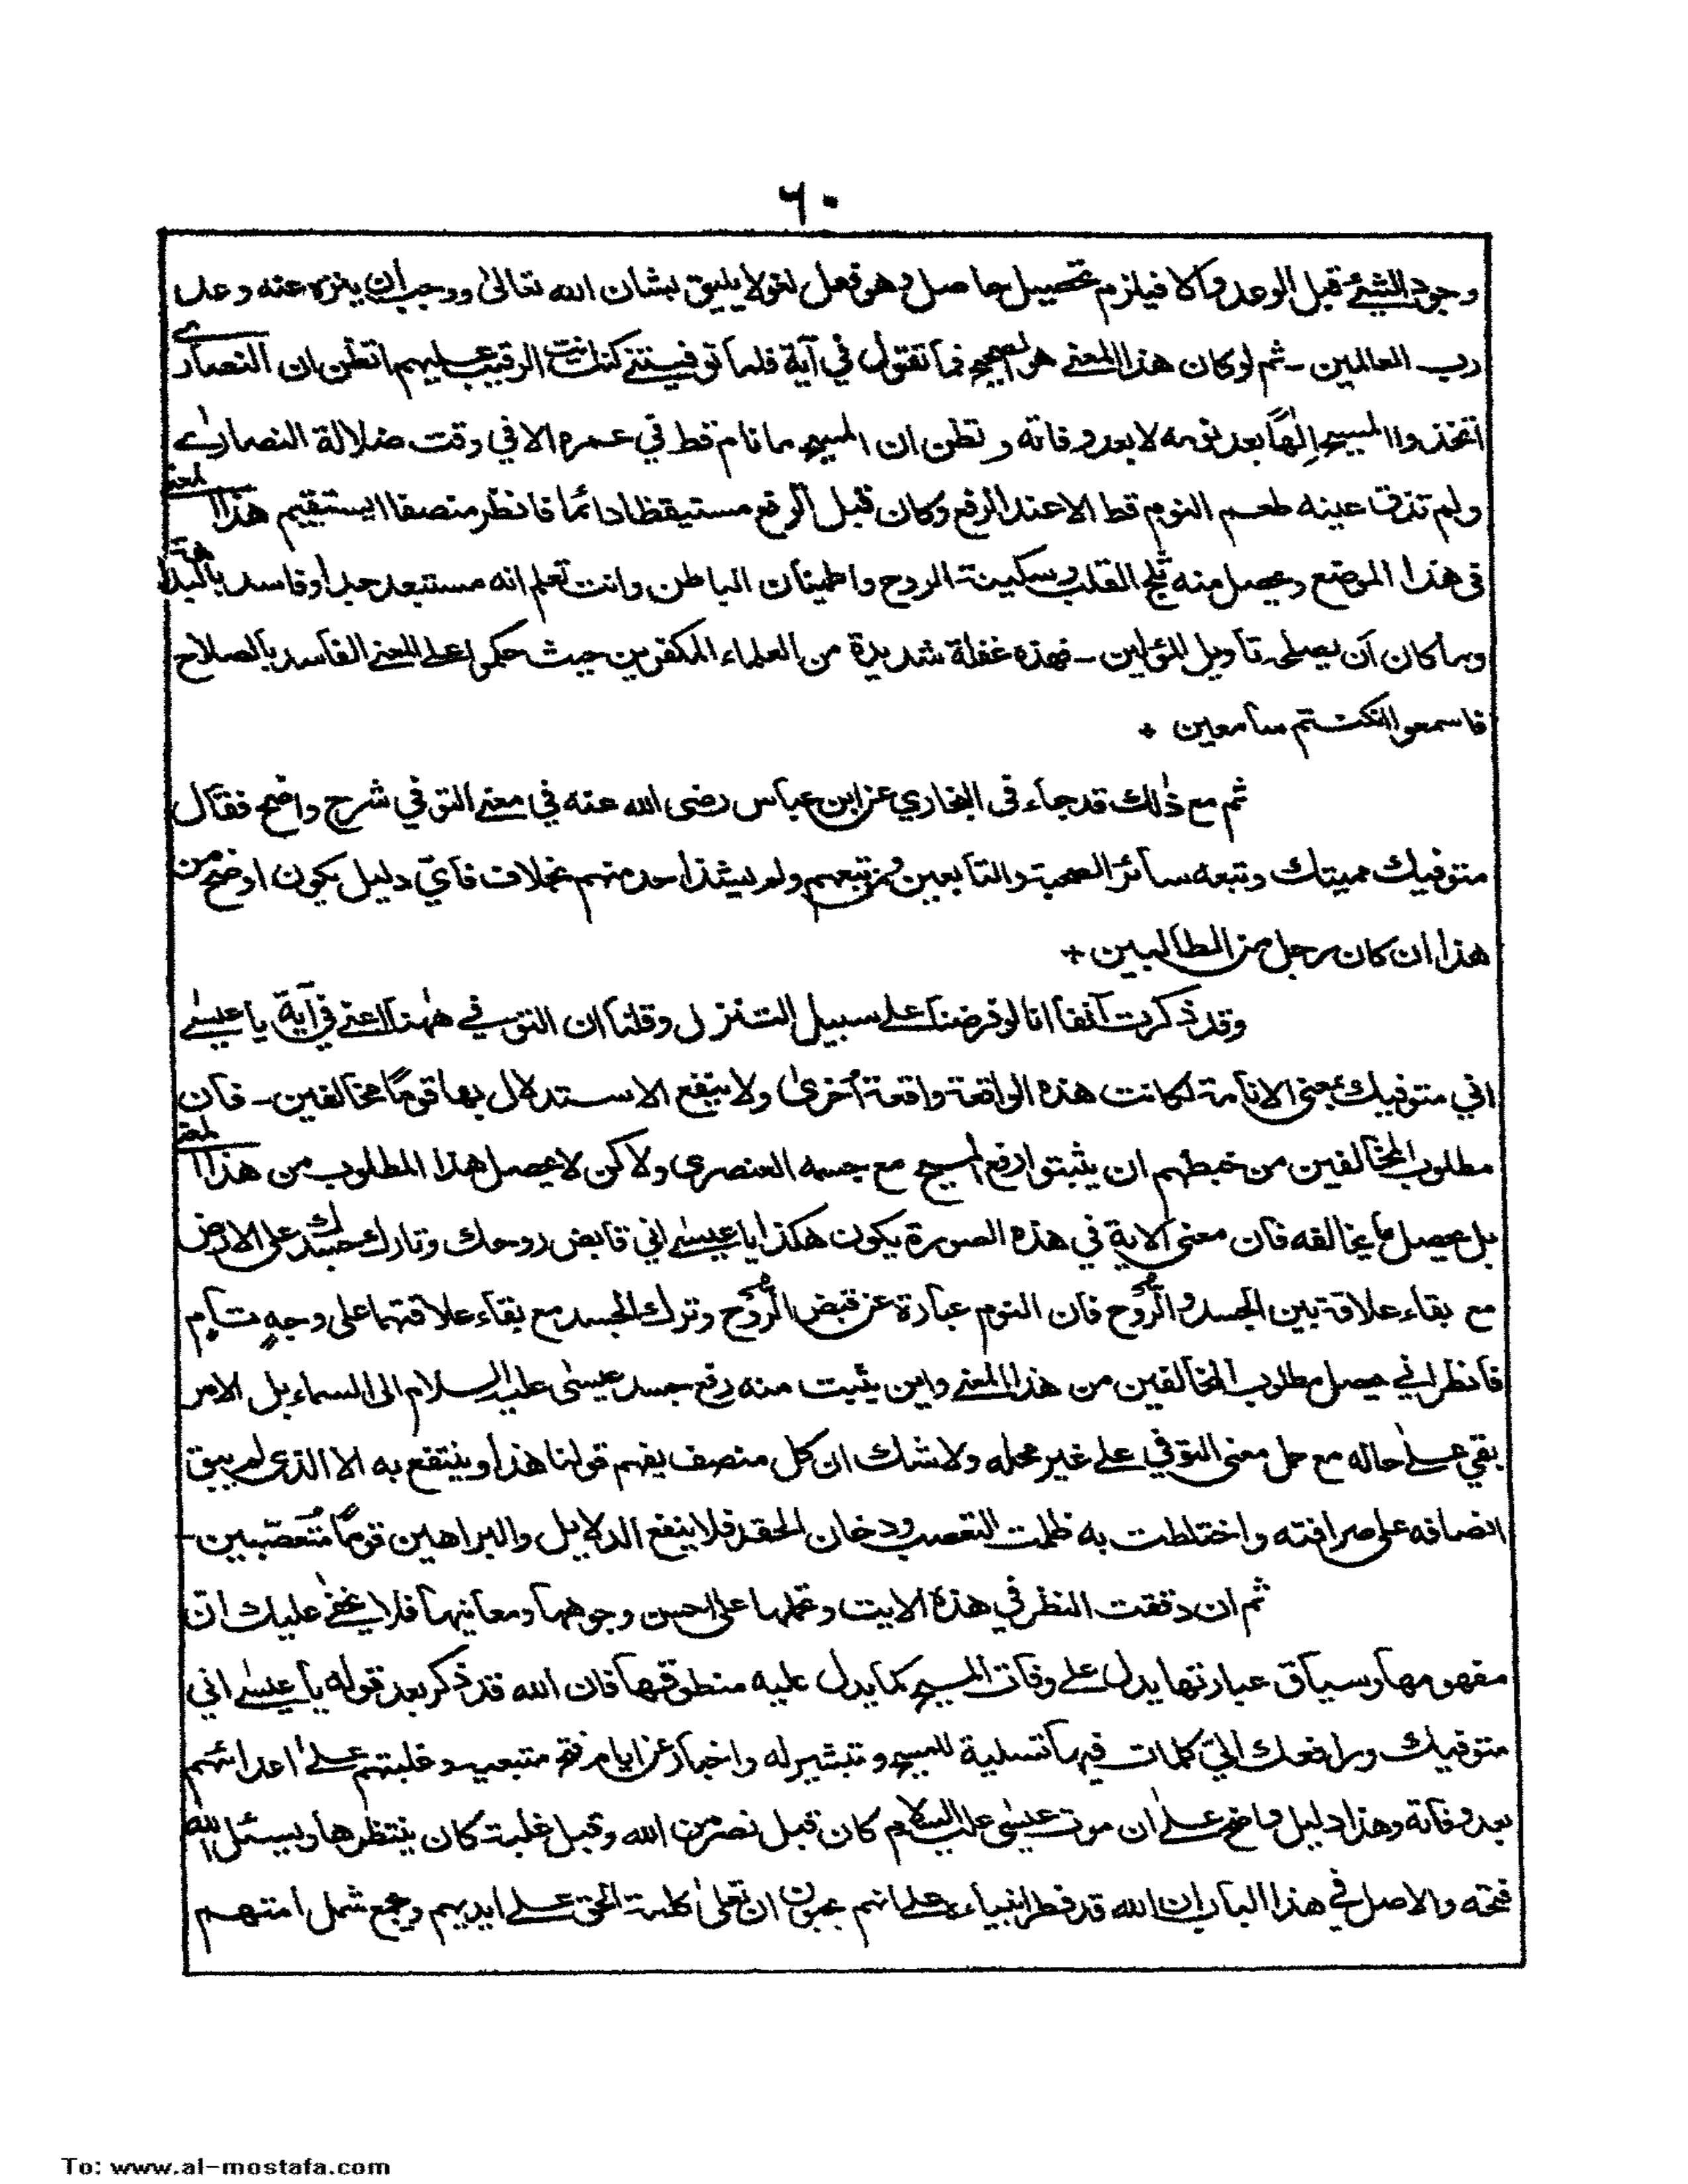 ٦٠
وجود الشيئ قبل الوعد والا فيلزم تحصيل حاصل وهو فعل لغو لا يليق بشان الله تعالىٰ ووجب ان ينزه عنه وعد
رب العالمين - ثم لو كان هذا المعنے هو الصحيح فما تقول في آية فلما توفيتنے كنت انت الرقيب عليهم اتظن ان النصارے
اتخذوا المسيح اِلٰهًا بعد نومه لا بعد وفاته وتظن ان المسيح ما نام قط في عمره الا في وقت ضلالة النصارٰے
ولم تذق عينه طعم النوم قط الا عند الرفع وكان قبل الرفع مستيقظا دائما فانظر منصفا ايستقيم هذا المعنے
فى هذا الموضع ويحصل منه ثلج القلب وسكينة الروح واطمينان الباطن وانت تعلم انه مستبعد جدا وفاسد بالبداهة
وما كان ان يصلح تاويل المؤلين - فهذه غفلة شديدة من العلماء المكفرين حيث حكموا على المعنے الفاسد بالصلاح
فاسمعوا ان كنتم سامعين +
ثم مع ذٰلك قد جاء فى البخاري عن ابن عباس رضى الله عنه في معنے التوفي شرح واضح فقال
متوفيك مميتك وتبعه سائر الصحبة والتابعين ومن تبعهم ولم يشذ احد منهم بخلاف فاَيّ دليل يكون اوضح من
هذا ان كان رجل من الطالبين +
وقد ذكرت آنفا انا لو فرضنا علے سبيل التنزل وقلنا ان التوفے في هٰهنا اعنے في آية يا عيسٰے
اني متوفيك بمعنى الانامة لكانت هذه الواقعة واقعة اُخرىٰ ولا ينفع الاستدلال بها قومًا مخالفين - فان
مطلوب المخالفين من خبطهم ان يثبتوا رفع المسيح مع جسمه العنصرى ولاكن لا يحصل هذا المطلوب من هذا المعنے
بل يحصل ما يخالفه فان معنى الاية في هذه الصورة يكون هكذا يا عيسٰے اني قابض روحك وتارك جسدك على الارض
مع بقاء علاقة بين الجسد والرُّوح فان النوم عبارة عن قبض الرُّوح وترك الجسد مع بقاء علاقتهما على وجهٍ تام
فانظر اني يحصل مطلوب المخالفين من هذا المعنے واين يثبت منه رفع جسد عيسٰى عليه السلام الى السماء بل الامر
بقي علےٰ حاله مع حمل معنى التوفي علے غير محله ولا شك ان كل منصف يفهم قولنا هذا وينتفع به الا الذى لم يبق
انصافه على صرافته واختلطت به ظلمت التعصب ودخان الحقد فلا ينفع الدلايل والبراهين قومًا مُتعصّبين -
ثم ان دققت النظر في هذه الايت وتحملها على احسن وجوهها ومعانيها فلا يخفٰے عليك ان
مفهومها وسياق عبارتها يدل علے وفات المسيح كما يدل عليه منطوقها فان الله قد ذكر بعد قوله يا عيسٰے اني
متوفيك ورافعك اليّ كلمات فيها تسلية للمسيح وتبشير له واخبار عن ايام فتح متبعيه وغلبتهم علےٰ اعدائهم
بعد وفاته وهذا دليل واضح علےٰ ان موت عيسٰى عليه السلام كان قبل نصر من الله وقبل غلبة كان ينتظرها ويسئل الله
فتحه والاصل في هذا الباب ان الله قد فطر انبياءه علے انهم يحبون ان تعلىٰ كلمة الحق علے ايديهم وجمع شمل امتهم
To: www.al-mostafa.com